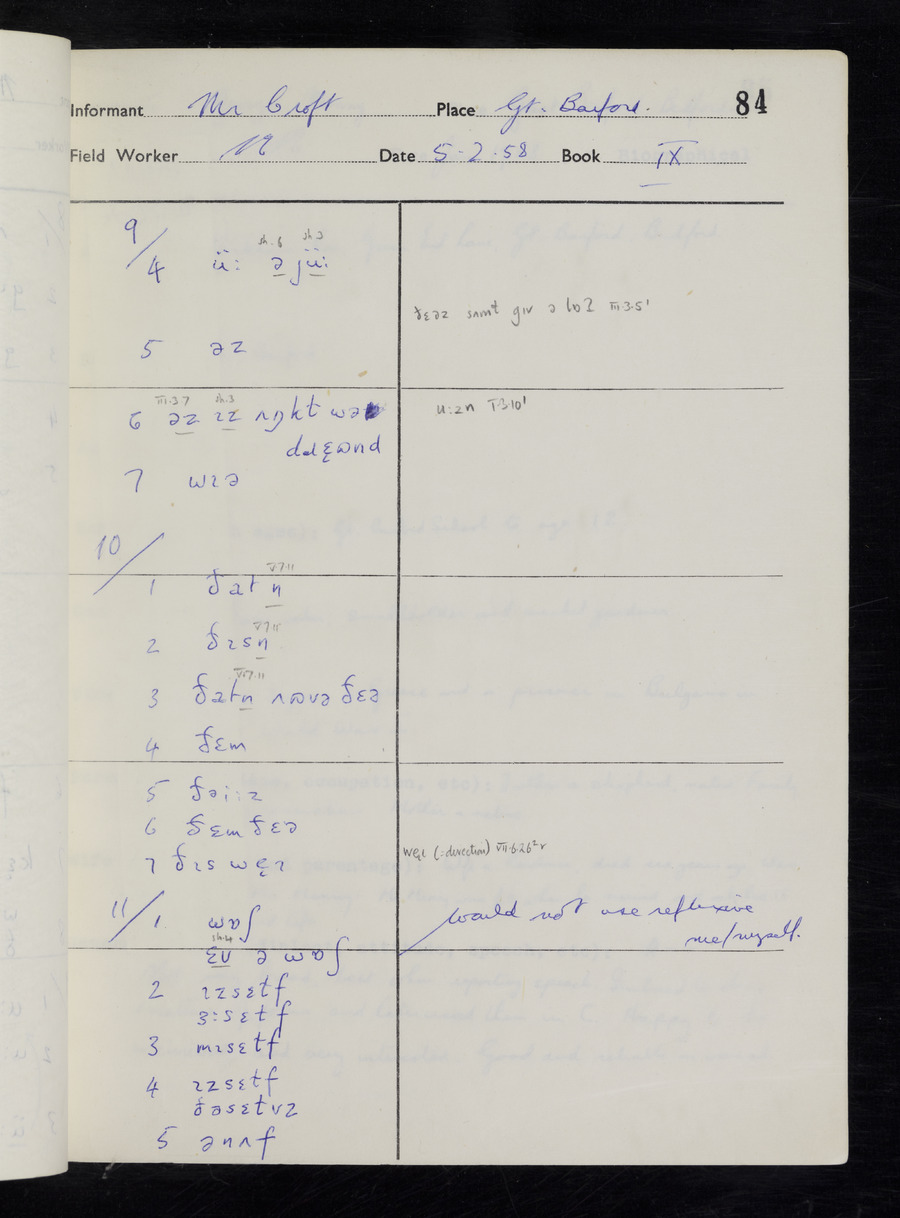 Informant Mr Croft Place Gt. Barford. 84
Field Worker Date 5.2.58 Book IX
9/
4 ü: ə jü:
sh.6 sh.3
ðɛəz sʌmt gɪv ə lɒʔ III.3.5¹
5 əz
III.3.7 sh.3
6 əz ɪz
u:zn I.3.10¹
7 wɪə
10/
V.7.11
1 ðat n
V.7.15
2 ðɪsn
VI.7.11
3 ðatn ðɛə
4 ðɛm
5 ðəi:z
6 ðɛm ðɛə
7 ðɪs wɛɪ
wɛɪ (=direction) VII.6.26²r
11/ 1. wɒʃ
would not use reflexive
me/myself.
sh.4
ɛv ə wɒʃ
2 ɪzsɛtf
ɜ:sɛtf
3 mɪsɛtf
4 ɪzsɛtf
ðəsɛtvz
5 ənʌf